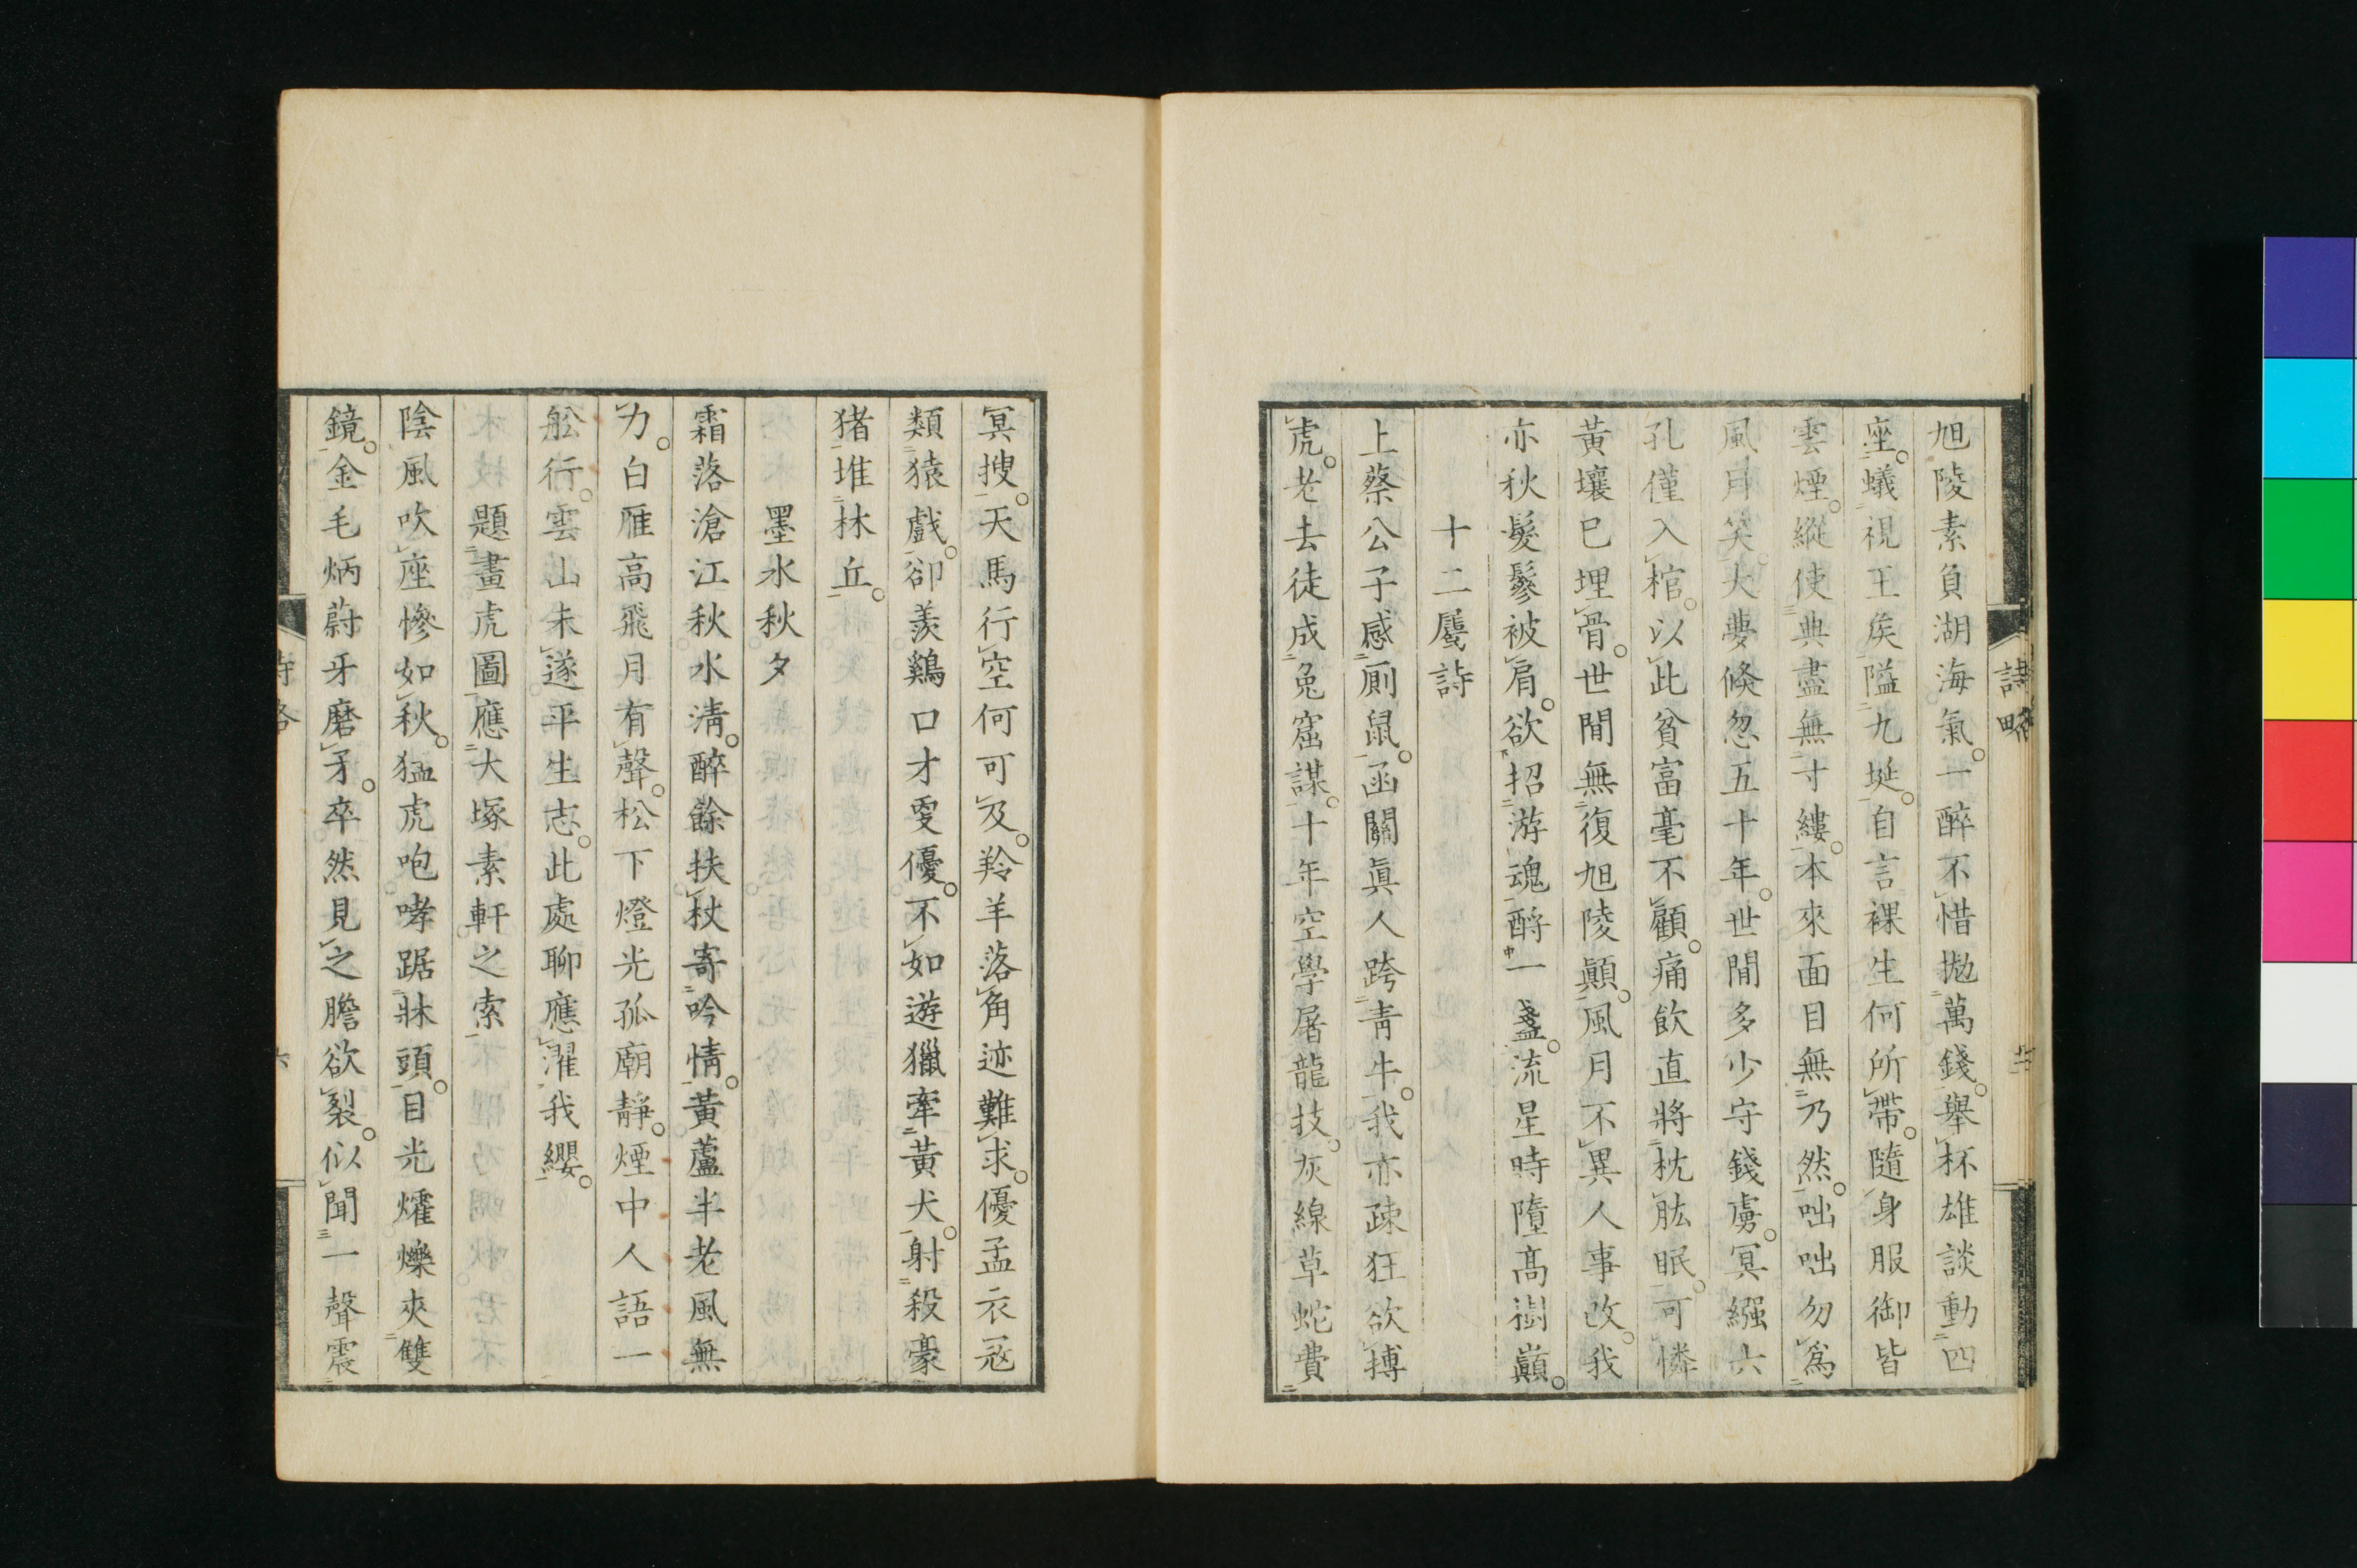 旭陵素負湖海氣。一醉不惜拋萬錢。舉杯雄談動四
座。蟻視王矦隘九埏。自言裸生何所帶。隨身服御皆
雲煙。縱使典盡無寸縷。本來面目無乃然。咄咄勿爲
風月笑。大夢倐忽五十年。世間多少守錢虜。冥繦六
孔僅入棺。以此貧富毫不顧。痛飲直將枕肱眠。可憐
黃壤已埋骨。世間無復旭陵顚。風月不異人事改。我
亦秋髮鬖被肩。欲招游魂酹一盞。流星時墮髙樹巔。
十二屬詩
上蔡公子感厠鼠。函關眞人跨青牛。我亦疎狂欲搏
虎。老去徒成兔窟謀。十年空學屠龍技。灰線草蛇費
詩略
冥搜。天馬行空何可及。羚羊落角迹難求。優孟衣冠
類猿戲。卻羨鷄口才更優。不如遊獵牽黃犬。射殺豪
猪堆林丘。
墨水秋夕
霜落滄江秋水清。醉餘扶杖寄吟情。黃蘆半老風無
力。白雁高飛月有聲。松下燈光孤廟靜。煙中人語一
舩行。雲山未遂平生志。此處聊應濯我纓。
題畫虎圖應大塚素軒之索
陰風吹座慘如秋。猛虎咆哮踞牀頭。目光爠爍夾雙
鏡。金毛炳蔚牙磨矛。卒然見之膽欲裂。似聞一聲震